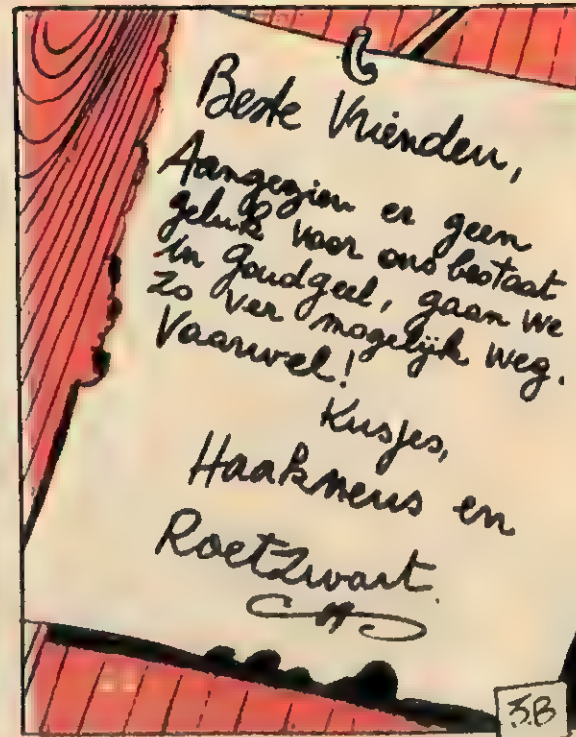 Beste Vrienden,
Aangezien er geen
geluk voor ons bestaat
in goudgeel, gaan we
zo ver mogelijk weg.
Vaarwel!
Kusjes,
Haakneus en
RoetZwart.
3B